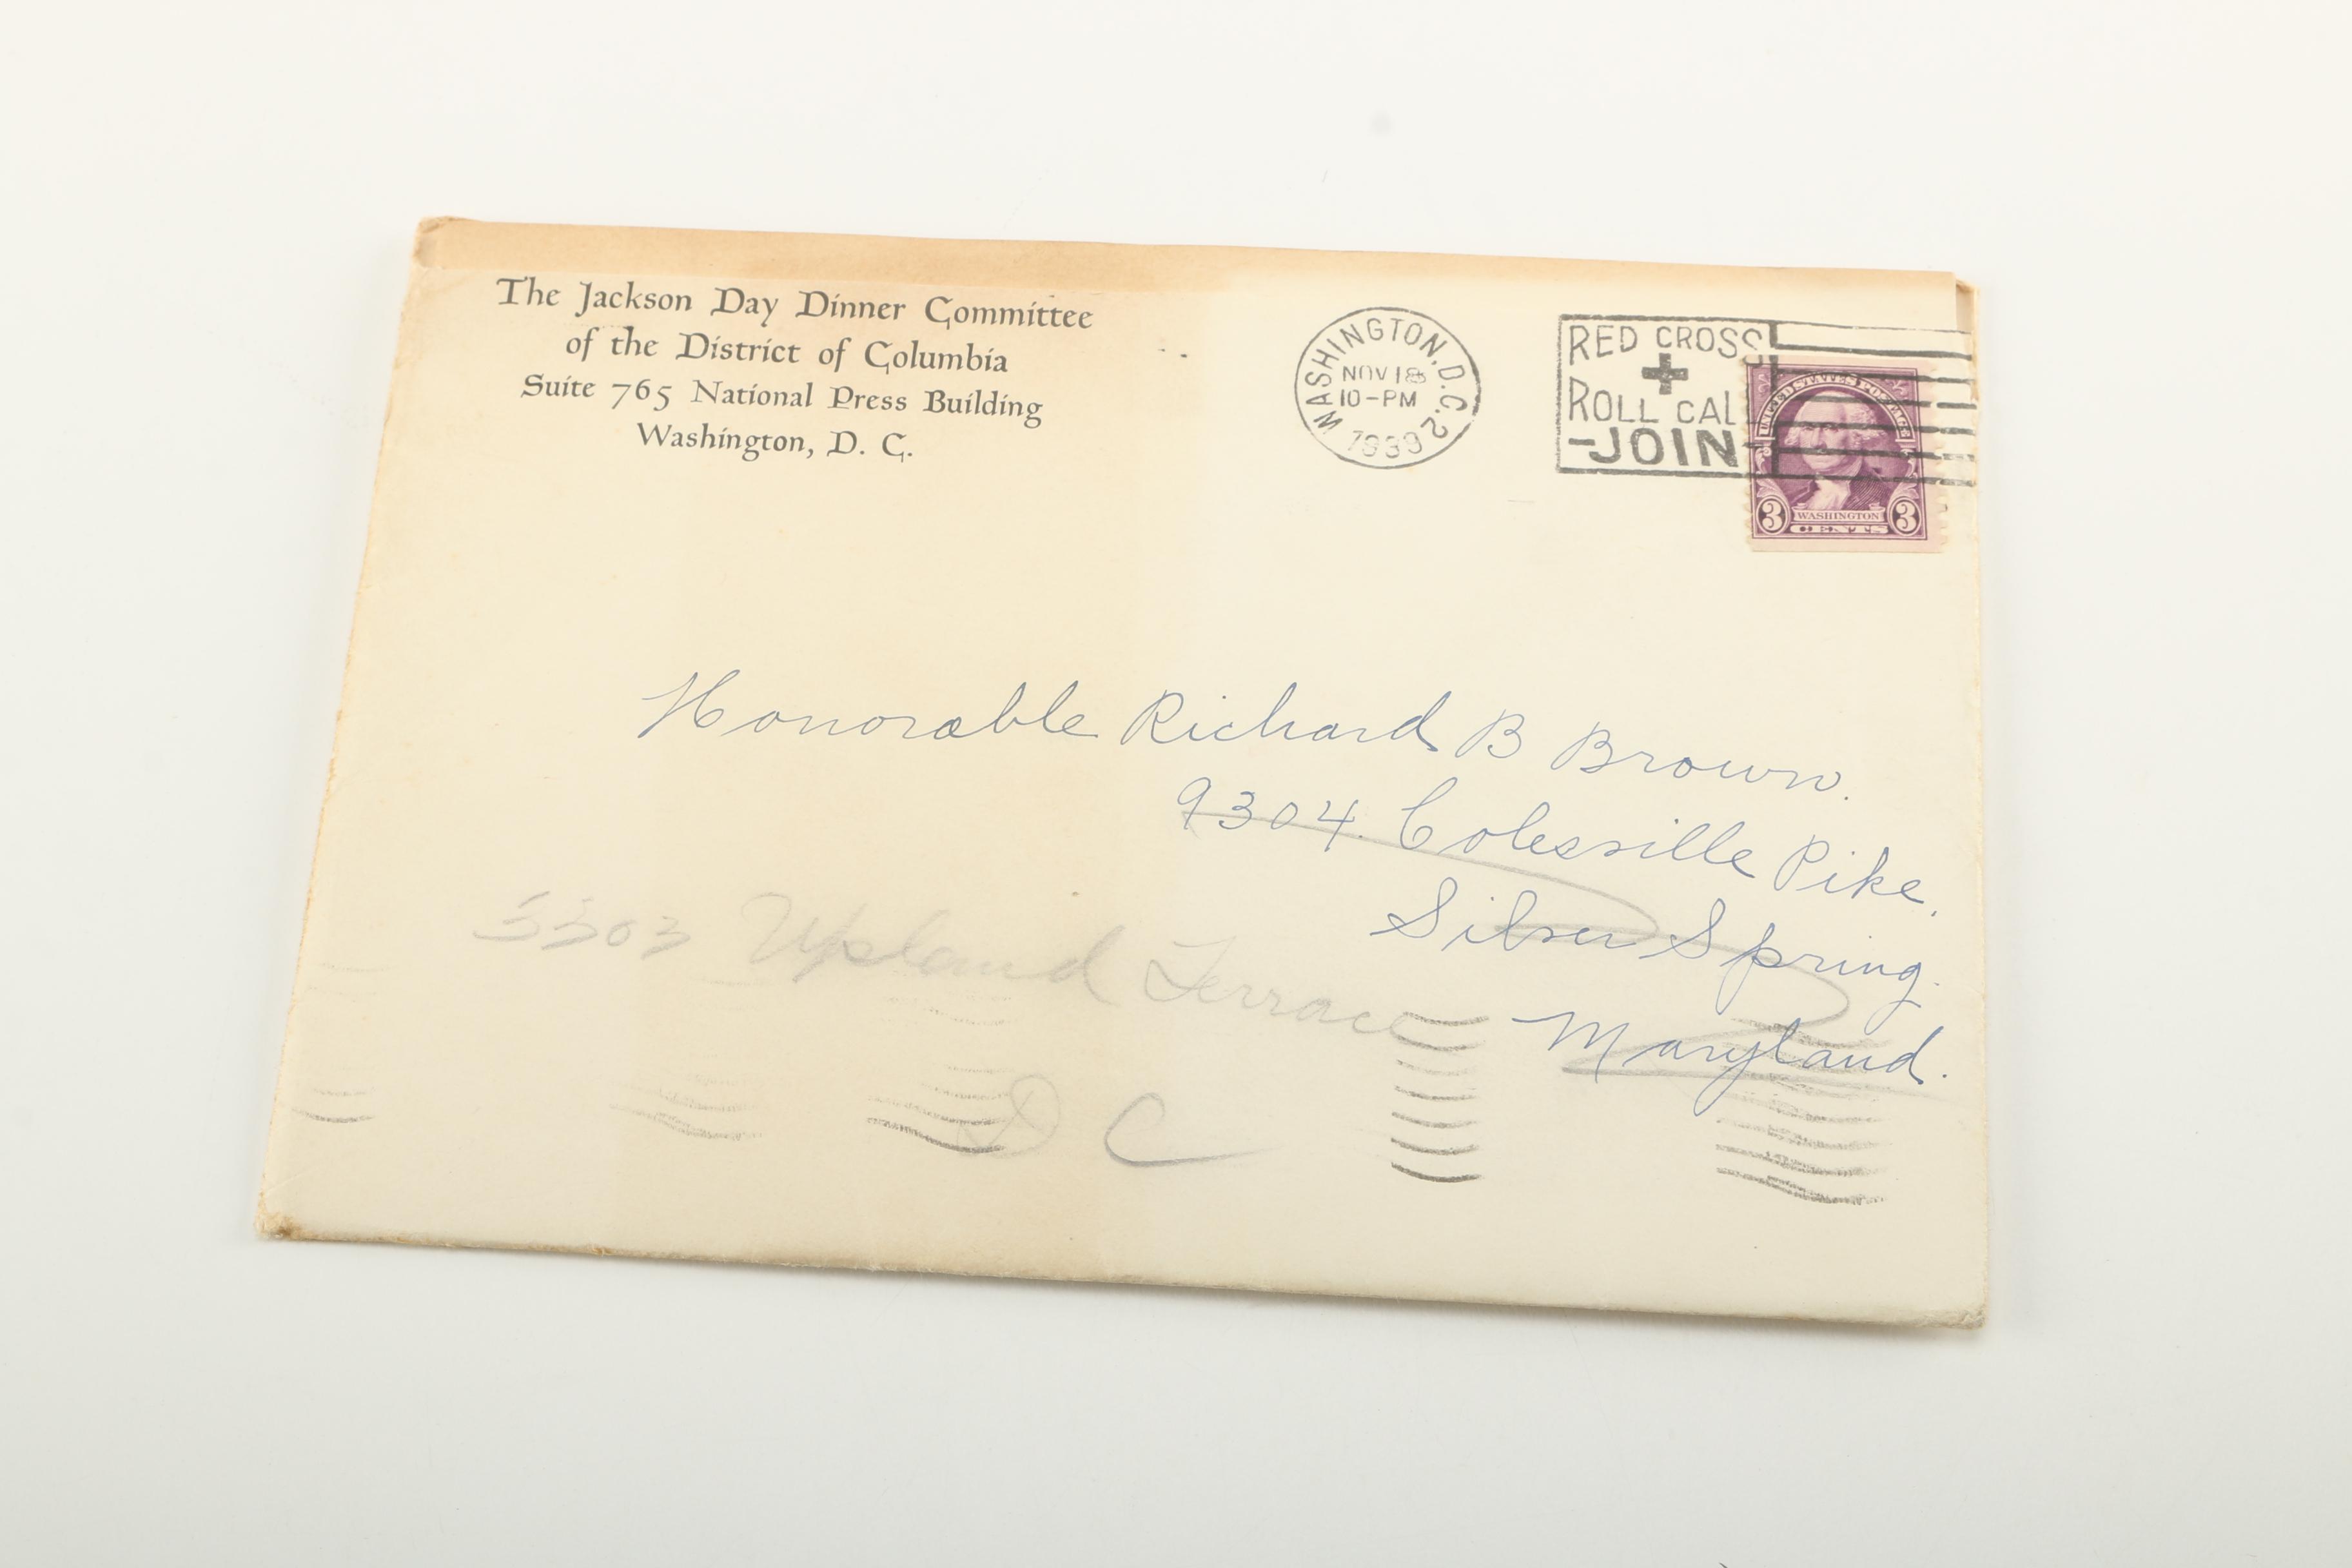 The Jackson Day Dinner Committee
of the District of Columbia
Suite 765 National Press Building
Washington, D. C.
WASHINGTON, D.C. 2
NOV 18
10-PM
1939
RED CROSS
ROLL CAL
-JOIN
UNITED STATES POSTAGE
3 WASHINGTON 3
CENTS
Honorable Richard B Brown.
9304 Colesville Pike,
Silver Spring.
Maryland.
3303 Upland Terrace
D C